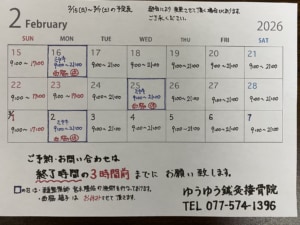 2/15(日)〜3/7(土)の予定表
都合により変更させて頂く場合があります。
ご了承ください。
2 February
2026
SUN MON TUE WED THU FRI SAT
15 16 17 18 19 20 21
9:00〜19:00 9:00〜21:00 9:00〜21:00 9:00〜21:00 9:00〜21:00 9:00〜21:00 9:00〜21:00
22 23 24 25 26 27 28
9:00〜19:00 9:00〜21:00 9:00〜21:00 9:00〜21:00 9:00〜21:00 9:00〜21:00 9:00〜21:00
3/1 2 3 4 5 6 7
9:00〜19:00 9:00〜21:00 9:00〜21:00 9:00〜21:00 9:00〜21:00 9:00〜21:00 9:00〜21:00
ご予約・お問い合わせは
終了時間の3時間前までにお願い致します。
ゆうゆう鍼灸接骨院
TEL 077-574-1396